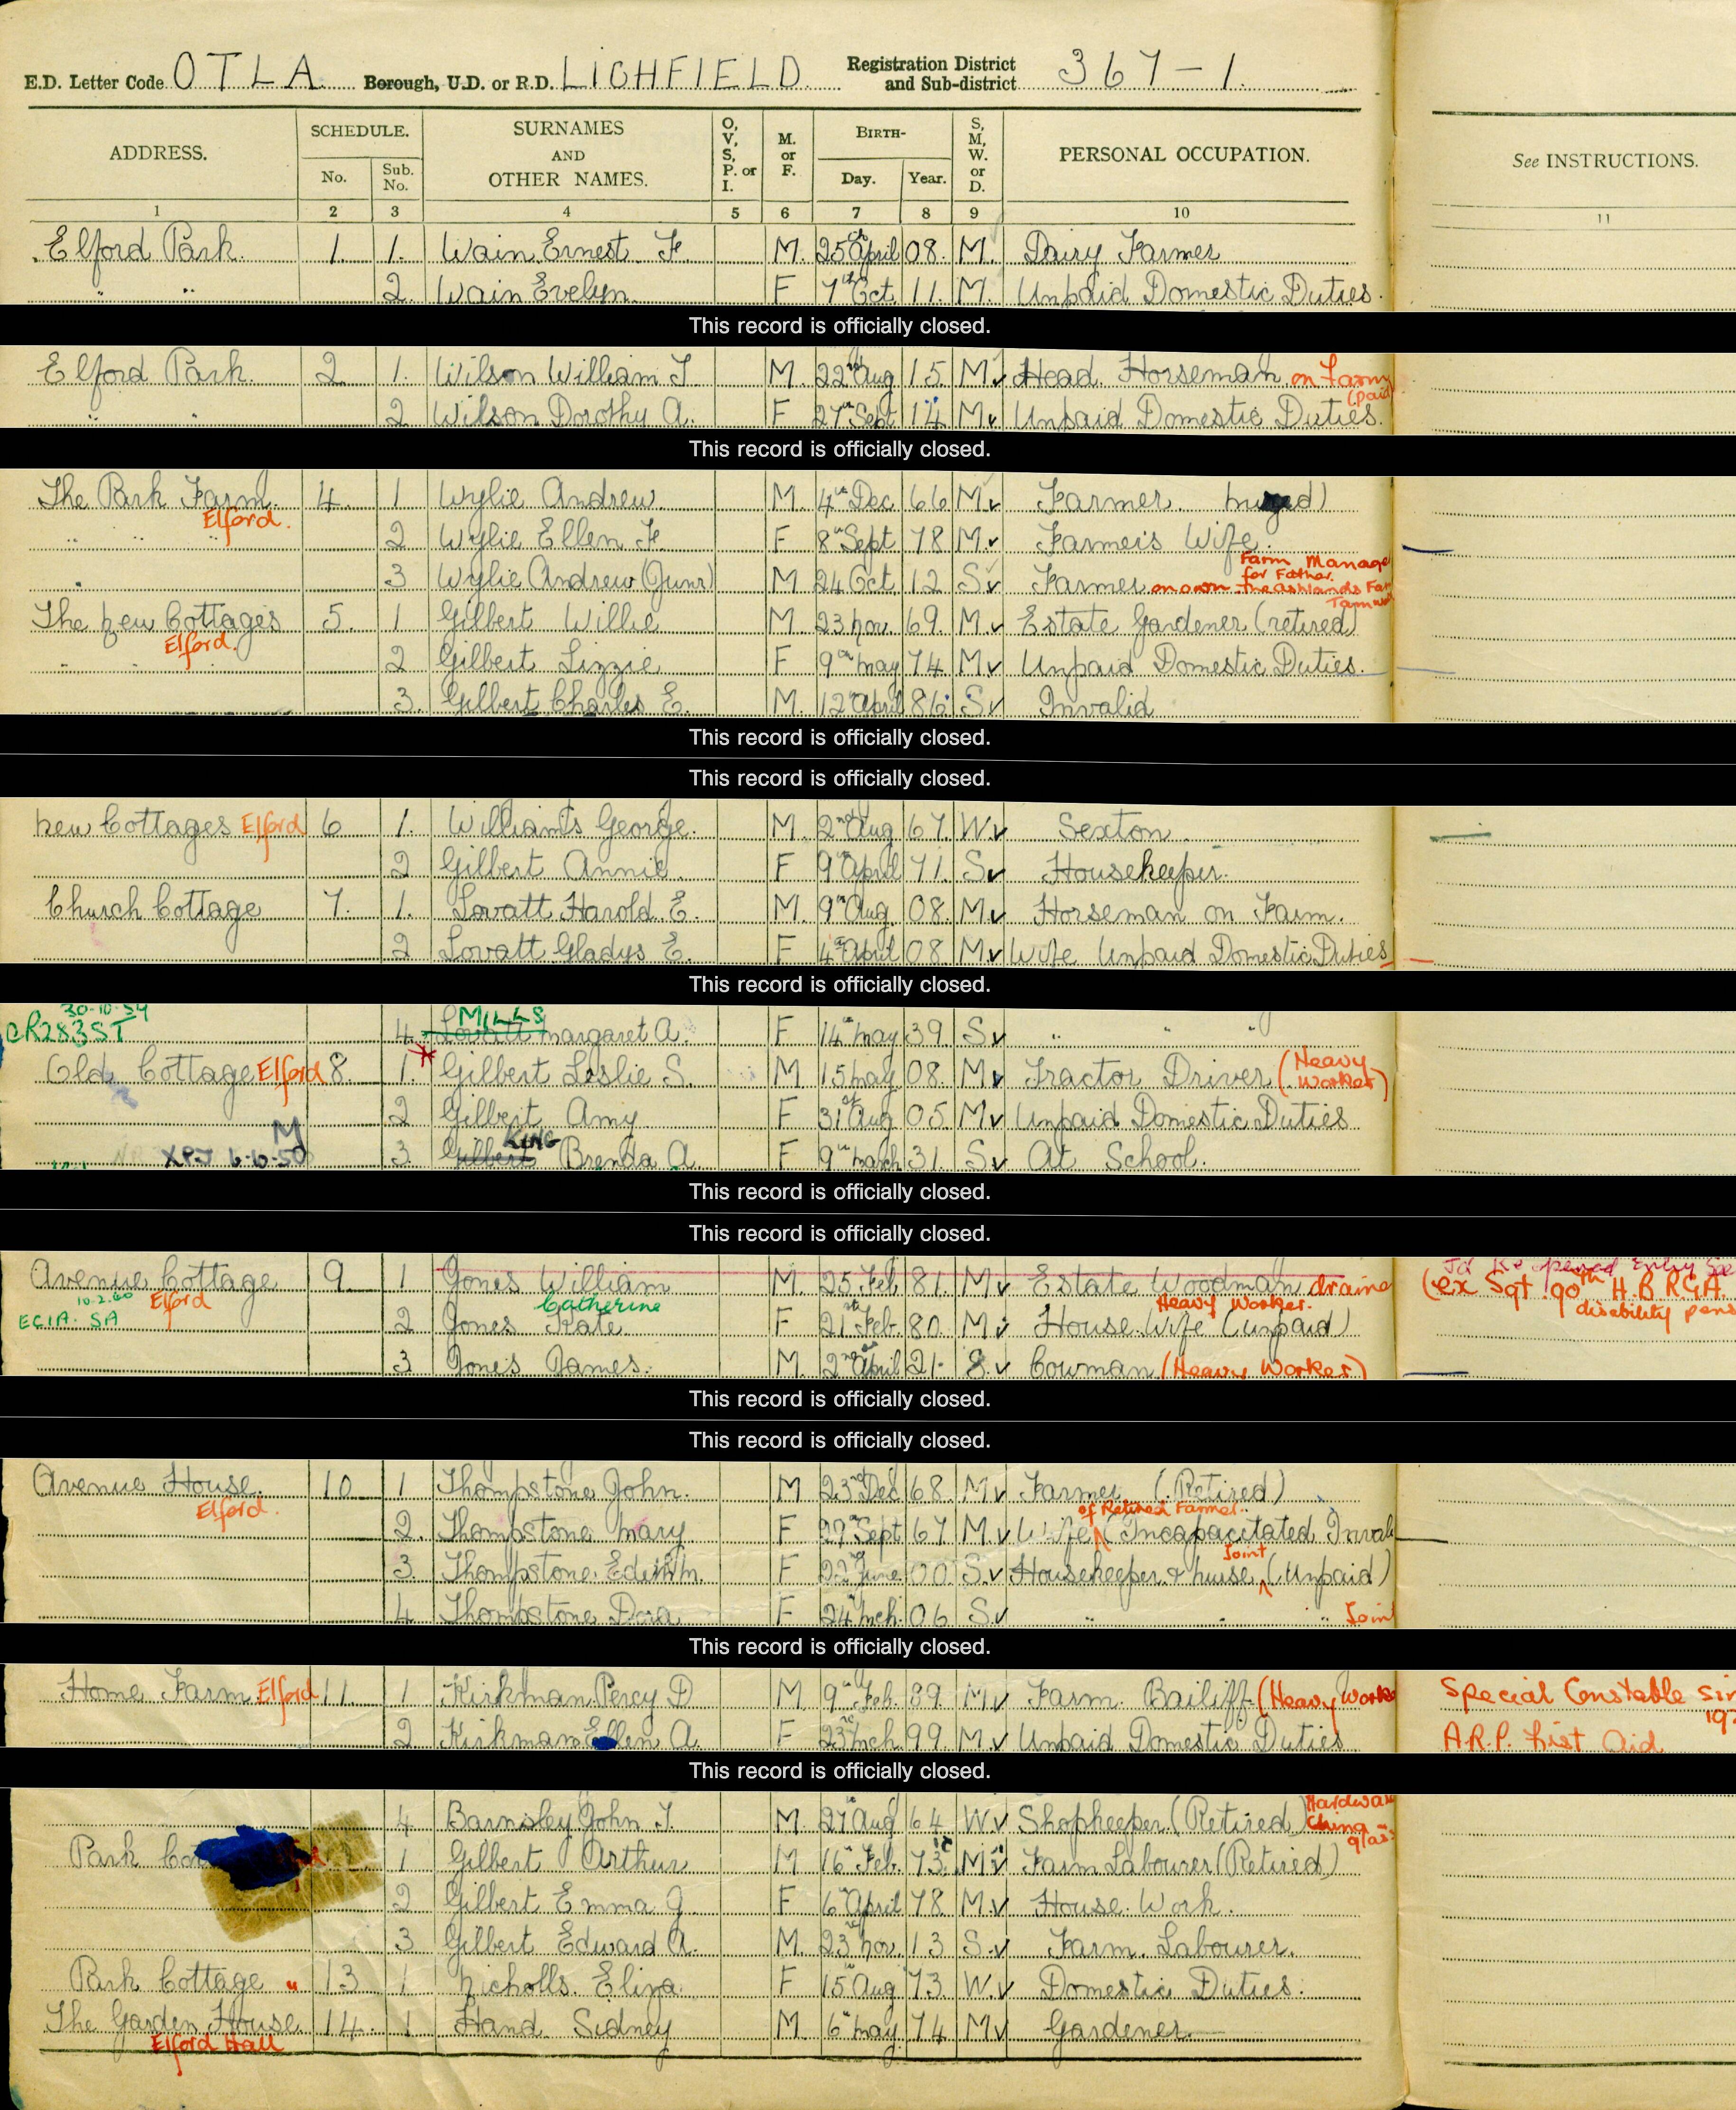 E.D. Letter Code OTLA Borough, U.D. or R.D. LICHFIELD Registration District and Sub-district 367-1.
ADDRESS. SCHEDULE. No. Sub. No. SURNAMES AND OTHER NAMES. O, V, S, P. or I. M. or F. BIRTH- Day. Year. S, M, W. or D. PERSONAL OCCUPATION. See INSTRUCTIONS.
1 2 3 4 5 6 7 8 9 10 11
Elford Park. 1. 1. Wain Ernest F. M. 25th April 08. M. Dairy Farmer
" " 2. Wain Evelyn. F 7th Oct 11. M. Unpaid Domestic Duties.
This record is officially closed.
Elford Park. 2. 1. Wilson William J. M. 22nd Aug 15. M. Head Horseman on Farm (paid
" " 2 Wilson Dorothy A. F 27th Sept 14 M Unpaid Domestic Duties.
This record is officially closed.
The Park Farm. 4. 1 Wylie Andrew M. 4th Dec 66 M Farmer.
Elford.
" " " 2 Wylie Ellen F. F 8th Sept 78 M. Farmer's Wife.
" 3 Wylie Andrew (Junr) M 24 Oct 12 S Farmer Farm Manage for Father. on own The Ashlands Fa Tamw
The New Cottages 5. 1 Gilbert Willie M. 23 Nov. 69. M Estate Gardener (retired)
Elford.
" " " 2 Gilbert Lizzie F 9th May 74 M Unpaid Domestic Duties.
3. Gilbert Charles E. M. 12th April 86 S Invalid
This record is officially closed.
This record is officially closed.
New Cottages Elford 6 1. Williams George. M. 2nd Aug 67. W. Sexton
2 Gilbert Annie. F 9th April 71. S Housekeeper.
Church Cottage 7. 1. Lovatt Harold E. M. 9th Aug. 08. M Horseman on Farm.
2 Lovatt Gladys E. F 4th April 08. M Wife Unpaid Domestic Duties
This record is officially closed.
30-10-54
CR283 ST 4. MILLS Lovatt Margaret A. F 14th May 39. S " " "
Old Cottage Elford 8. 1. Gilbert Leslie S. M 15 May 08. M Tractor Driver (Heavy Worker)
2 Gilbert Amy F 31st Aug 05. M Unpaid Domestic Duties
M
XPJ 6-10-50 3 KING Gilbert Brenda A. F 9th March 31. S At School.
This record is officially closed.
This record is officially closed.
Avenue Cottage 9. 1 Jones William M 25 Feb 81. M Estate Woodman draine (ex Sgt 90th H.B R.G.A.
Elford Heavy Worker. disability pens
10.2.60
ECIA. SA 2 Catherine Jones Kate F 21st Feb. 80. M House Wife (unpaid)
3 Jones James. M. 2nd April 21. S. Cowman (Heavy Worker)
This record is officially closed.
This record is officially closed.
Avenue House. 10 1 Thompstone John. M 23rd Dec 68. M Farmer (Retired)
Elford.
2. Thompstone Mary F 29th Sept 67 M. Wife of Retired Farmer. (Incapacitated Inval
3. Thompstone Edith M. F 22nd June 00. S. Housekeeper & Nurse Joint (Unpaid)
4 Thompstone Dora F 24th Mch. 06 S " " " Joint
This record is officially closed.
Home Farm Elford 11. 1 Kirkman Percy D M. 9th Feb. 89. M Farm Bailiff (Heavy Worke Special Constable
2 Kirkman Ellen A. F 23rd Mch 99. M Unpaid Domestic Duties A.R.P. First Aid
This record is officially closed.
4 Barnsley John T. M. 27th Aug 64 W Shopkeeper (Retired) Hardwar China glass
Park 1 Gilbert Arthur M 16th Feb. 73 M Farm Labourer (Retired)
2 Gilbert Emma J. F 6th April 78 M. House Work.
3 Gilbert Edward A. M. 23rd Nov. 13 S. Farm Labourer.
Park Cottage " 13 1 Nicholls Eliza. F 15th Aug 73. W. Domestic Duties.
The Garden House 14. 1 Hand Sidney M. 6th May 74 M Gardener
Elford Hall